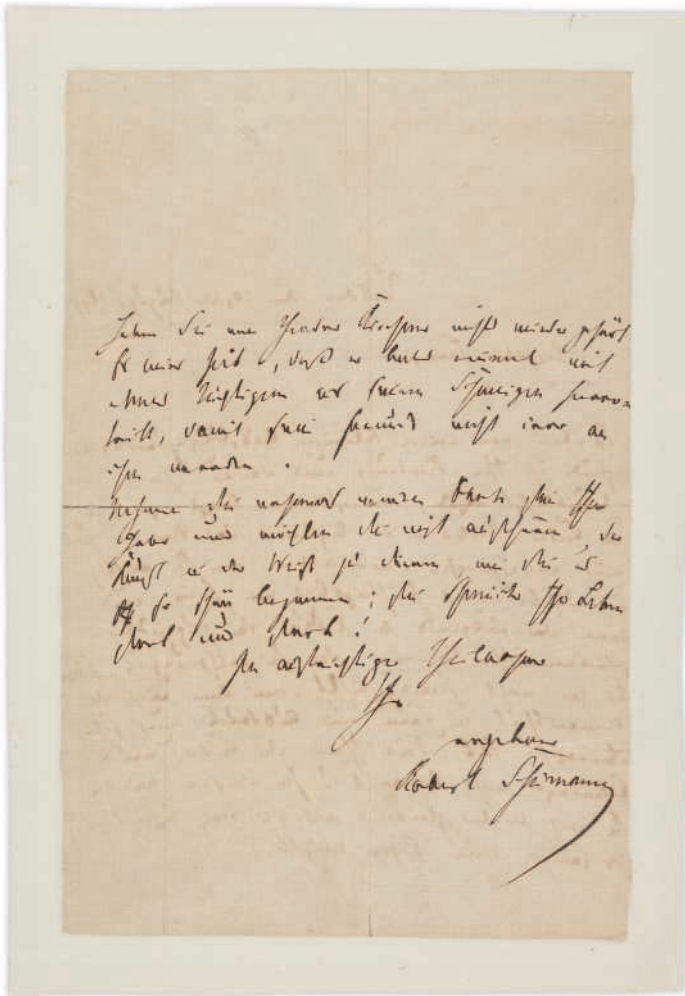 Haben Sie von Theodor Kirchner nichts wieder gehört
Es wäre Zeit, daß er bald einmal mit
etwas Tüchtigem aus seinem Schweigen hervor
tritt, damit seine Freunde nicht irre an
ihm werden.
Nehmen Sie nochmals meinen Dank für Ihre
Gabe und möchten Sie nicht aufhören, der
Kunst in der Weise zu dienen, wie Sie es
so schön begonnen; Ihr Leben
und
In aufrichtiger Theilnahme
Ihr
ergebener
Robert Schumann